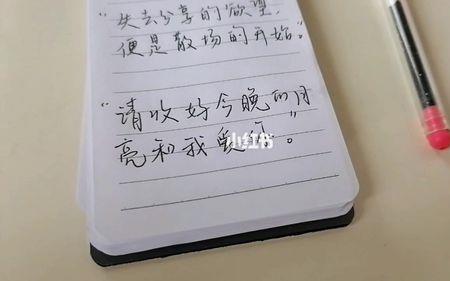 “失去分享的欲望，
便是散场的开始。”
“请收好今晚的月
亮和我。”
小红书